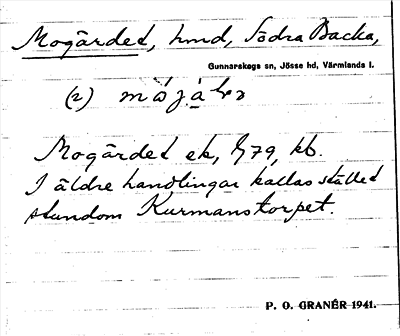 Mogärdet, hmd, Södra Backa,
Gunnarskogs sn, Jösse hd, Värmlands l.
(2)
Mogärdet ek, G79, kb.
I äldre handlingar kallas stället
stundom Kurmanstorpet.
P. O. GRANÉR 1941.